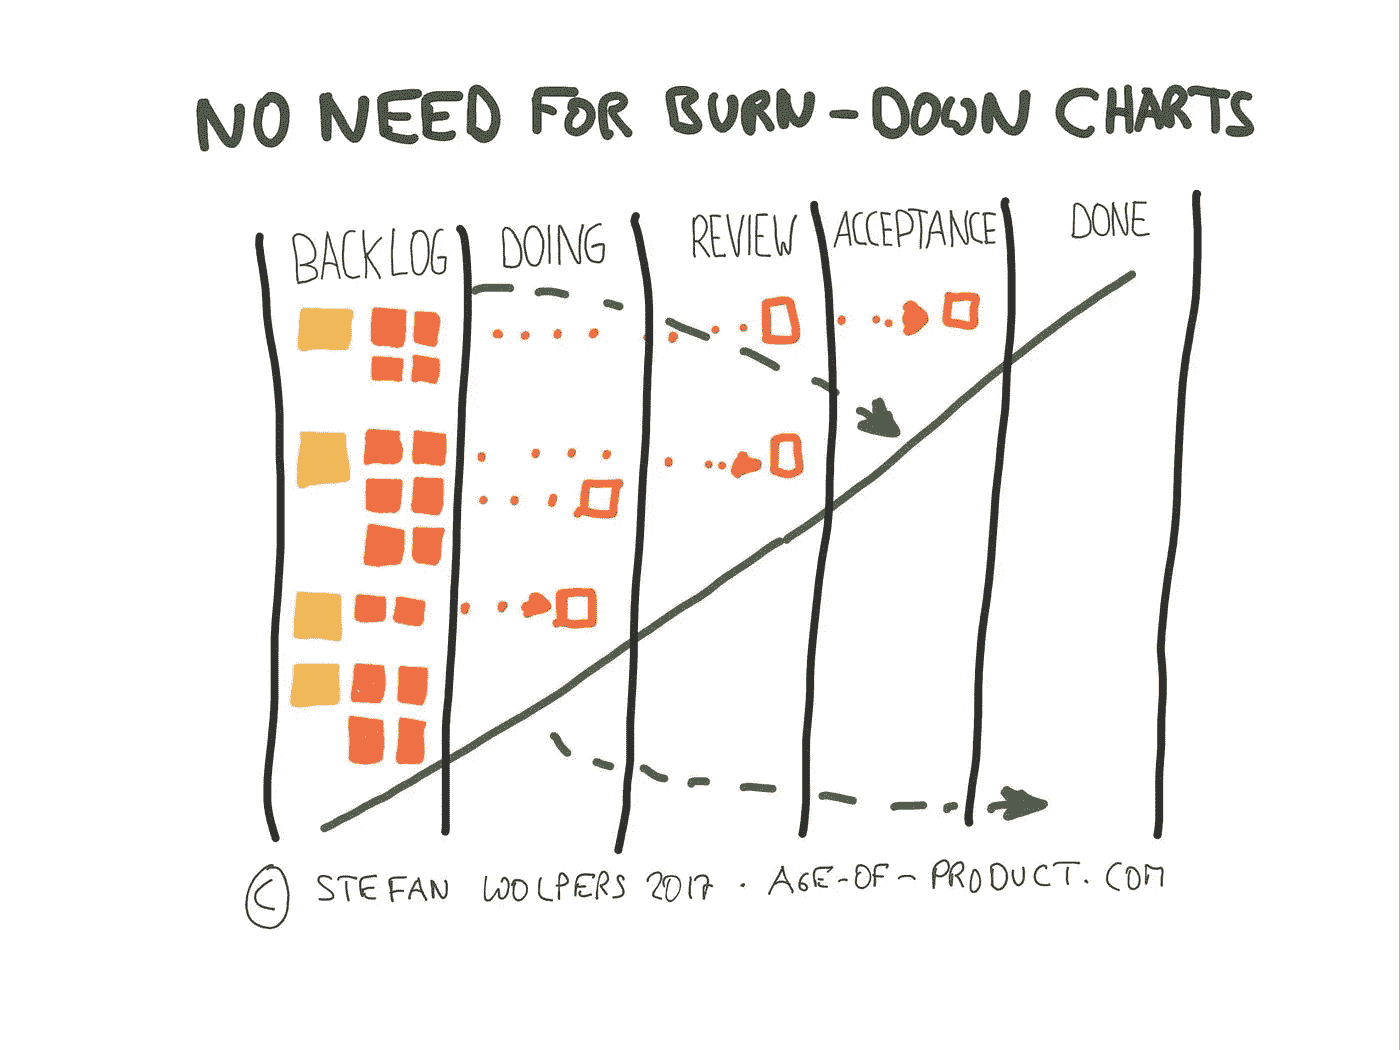 NO NEED FOR BURN-DOWN CHARTS
BACKLOG DOING REVIEW ACCEPTANCE DONE
© STEFAN WOLPERS 2017 · AGE-OF-PRODUCT.COM